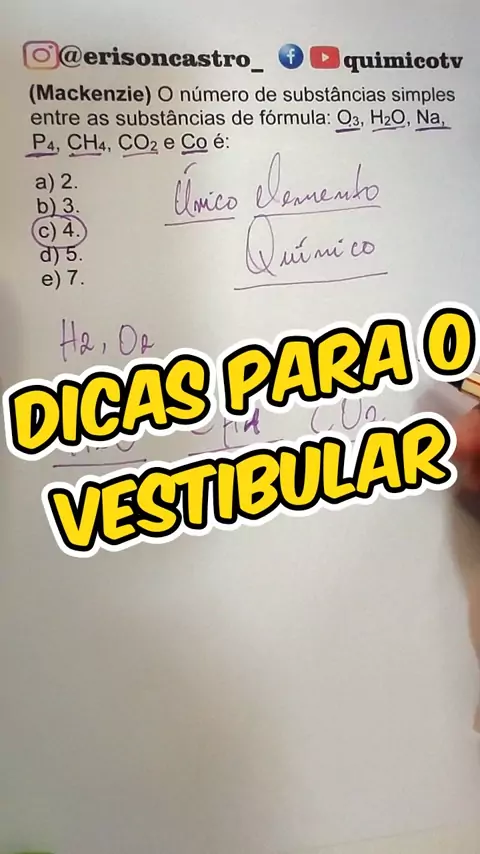 @erisoncastro_ quimicotv
(Mackenzie) O número de substâncias simples
entre as substâncias de fórmula: O₃, H₂O, Na,
P₄, CH₄, CO₂ e Co é:
a) 2.
b) 3.
c) 4.
d) 5.
e) 7.
Único elemento
Químico
H₂, O₂
DICAS PARA O
CO₂
VESTIBULAR